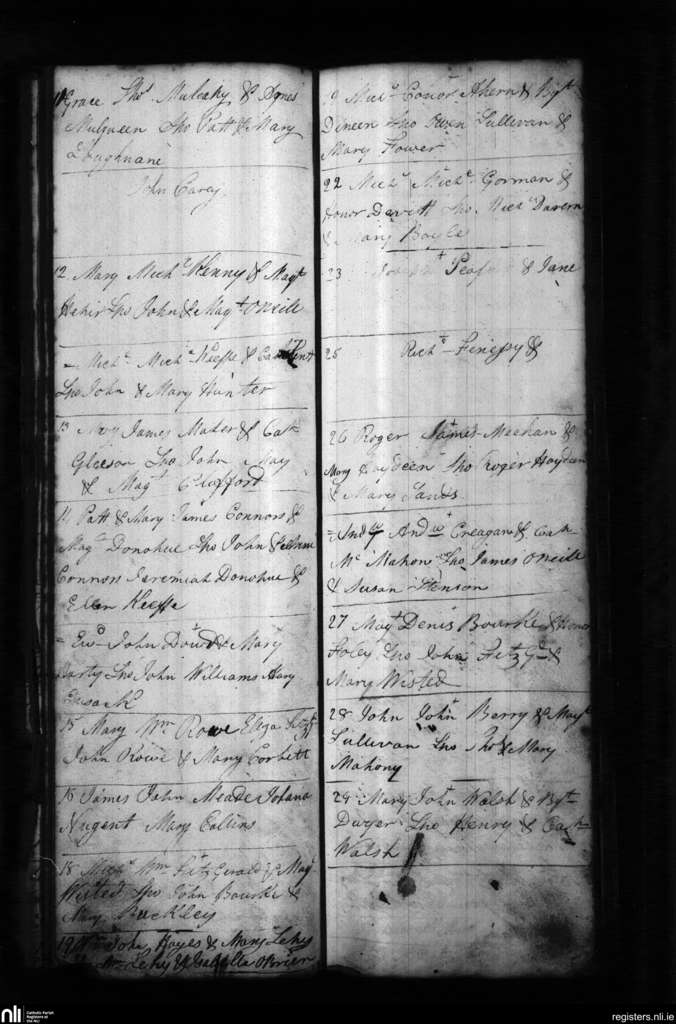 11 Grace Thos Mulcahy & Agnes
Mulqueen Spo Patt & Mary
Loughnane
John Carey
12 Mary Mich Kenny & Magt
Hehir Spo John & Magt ONeill
= Mich Mich Keeffe & Cath
Spo John & Mary Hunter
13 Mary James Maher & Cath
Gleeson Spo John May
& Magt Clifford
14 Patt & Mary James Connors &
Magt Donohue Spo John &
Connors Jeremiah Donohue &
Ellen Keeffe
= Ewd John Dowd & Mary
Harty Spo John Williams Mary
15 Mary Wm Rowe Eliza
John Rowe & Mary Corbett
16 James John Meade Johana
Nugent Mary Collins
18 Mich Wm FitzGerald & Magt
Wisted Spo John Bourke &
Mary Buckley
19 Wm John Hayes & Mary Lehy
Wm Lehy & Isabella OBrien
19 Mich Conor Ahern & Bgt
Dineen Spo Owen Sullivan &
Mary Power
22 Mich Mich Gorman &
Honor Devitt Spo Mich Davern
& Mary Boyle
23 & Jane
25 Richd Finessy &
26 Roger James Meehan &
Mary Haydeen Spo Roger Haydeen
& Mary Sands
= And And Creagan & Cath
Mc Mahon Spo James ONeill
& Susan Henson
27 Magt Denis Bourke & Honor
Foley Spo John FitzGd &
Mary Wisted
28 John John Berry & Magt
Sullivan Spo Thos & Mary
Mahony
29 Mary John Walsh & Bgt
Dwyer Spo Henry & Cath
Walsh
nli
Catholic Parish
Registers at
the NLI
registers.nli.ie